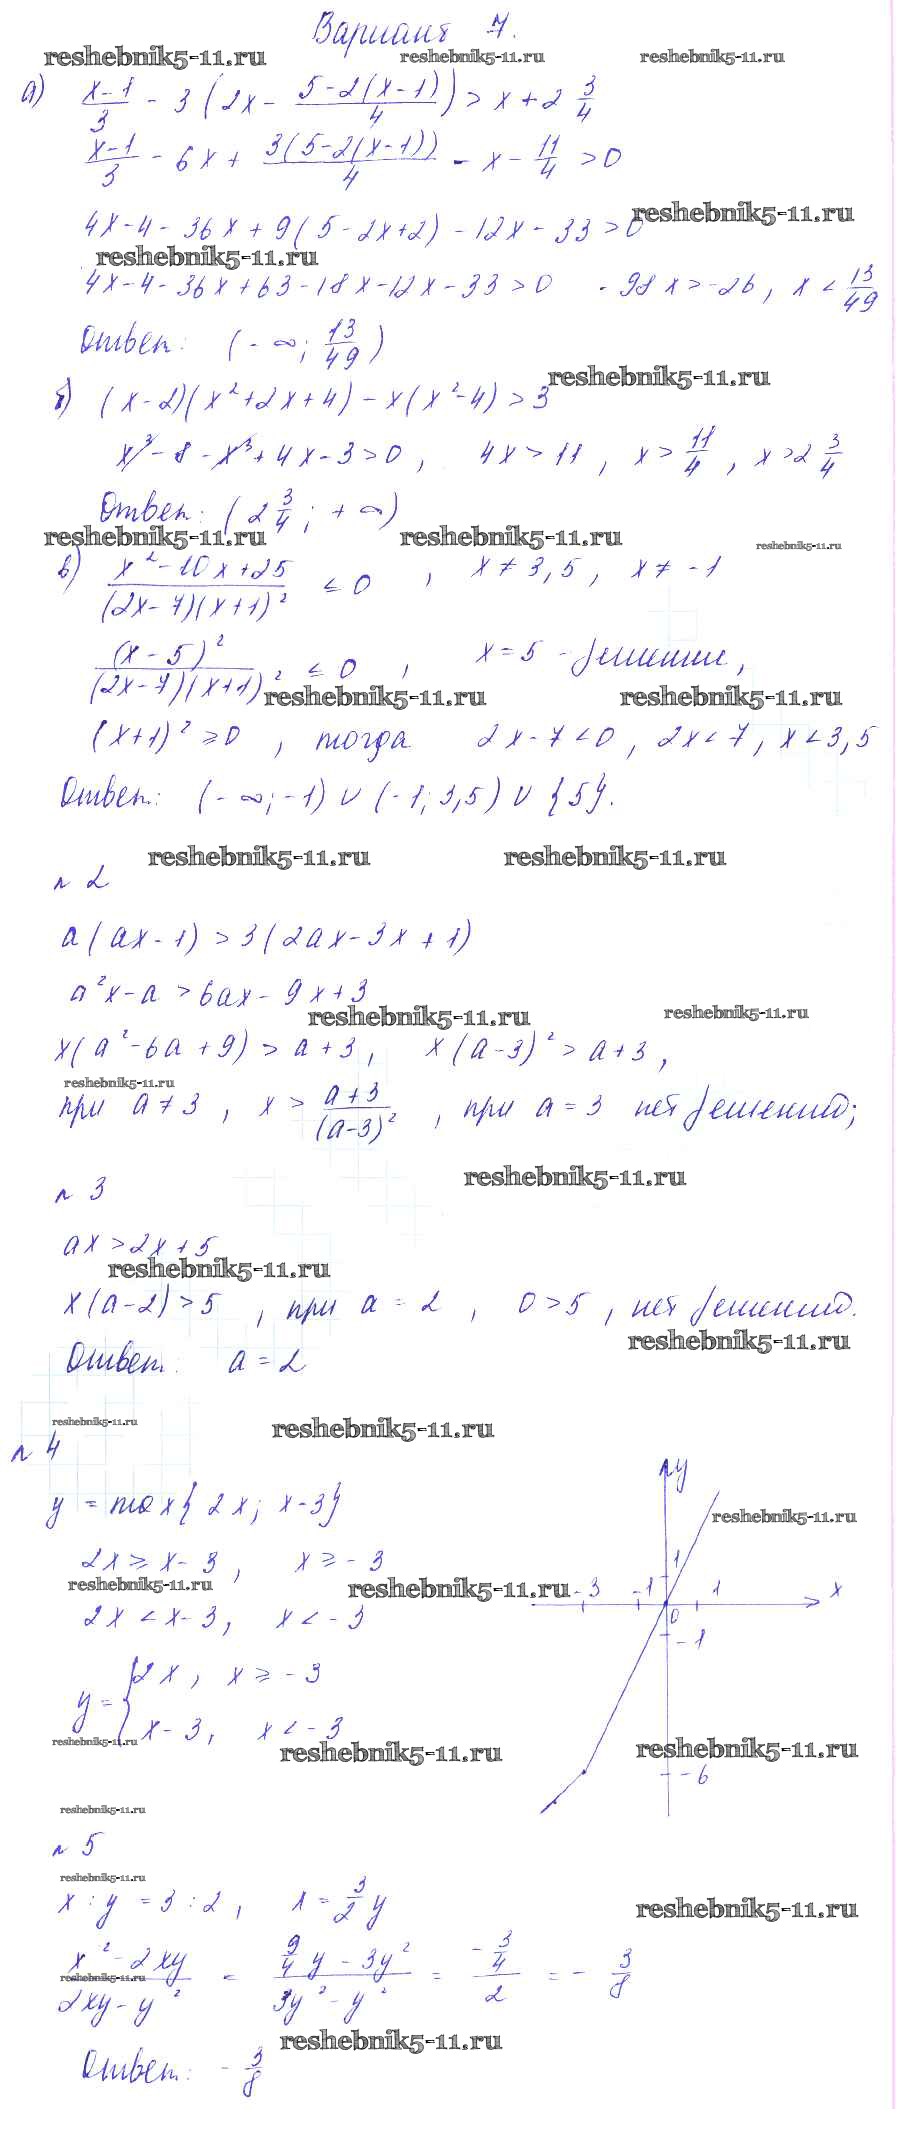 Вариант 7.
reshebnik5-11.ru reshebnik5-11.ru reshebnik5-11.ru
а) (x-1)/3 - 3(2x - (5-2(x-1))/4) > x+2 3/4
(x-1)/3 - 6x + 3(5-2(x-1))/4 - x - 11/4 > 0
reshebnik5-11.ru
4x-4-36x+9(5-2x+2)-12x-33>0
reshebnik5-11.ru
4x-4-36x+63-18x-12x-33>0 -98x>-26, x < 13/49
Ответ: (-∞; 13/49)
reshebnik5-11.ru
б) (x-2)(x²+2x+4)-x(x²-4)>3
x³-8-x³+4x-3>0, 4x>11, x > 11/4, x>2 3/4
Ответ: (2 3/4; +∞)
reshebnik5-11.ru reshebnik5-11.ru reshebnik5-11.ru
в) (x²-10x+25)/((2x-7)(x+1)²) ≤ 0, x≠3,5, x≠-1
(x-5)²/((2x-7)(x+1)²) ≤ 0, x=5 - решение,
reshebnik5-11.ru reshebnik5-11.ru
(x+1)²≥0, тогда 2x-7<0, 2x<7, x<3,5
Ответ: (-∞;-1)∪(-1;3,5)∪{5}.
reshebnik5-11.ru reshebnik5-11.ru
№ 2
a(ax-1)>3(2ax-3x+1)
a²x-a>6ax-9x+3
reshebnik5-11.ru reshebnik5-11.ru
x(a²-6a+9)>a+3, x(a-3)²>a+3,
reshebnik5-11.ru
при a≠3, x > (a+3)/(a-3)², при a=3 нет решений;
reshebnik5-11.ru
№ 3
ax>2x+5
reshebnik5-11.ru
x(a-2)>5, при a=2, 0>5, нет решений.
reshebnik5-11.ru
Ответ: a=2
reshebnik5-11.ru reshebnik5-11.ru
№ 4
y = max{2x; x-3}
2x≥x-3, x≥-3
reshebnik5-11.ru reshebnik5-11.ru
2x<x-3, x<-3
y = { 2x, x≥-3
x-3, x<-3
reshebnik5-11.ru reshebnik5-11.ru
y
reshebnik5-11.ru
1
-3 -1 1 x
0
-1
reshebnik5-11.ru
-6
reshebnik5-11.ru
№ 5
reshebnik5-11.ru
x:y=3:2, x = 3/2 y
reshebnik5-11.ru
(x²-2xy)/(2xy-y²) = (9/4 y - 3y²)/(3y²-y²) = (-3/4)/2 = - 3/8
reshebnik5-11.ru
reshebnik5-11.ru
Ответ: - 3/8